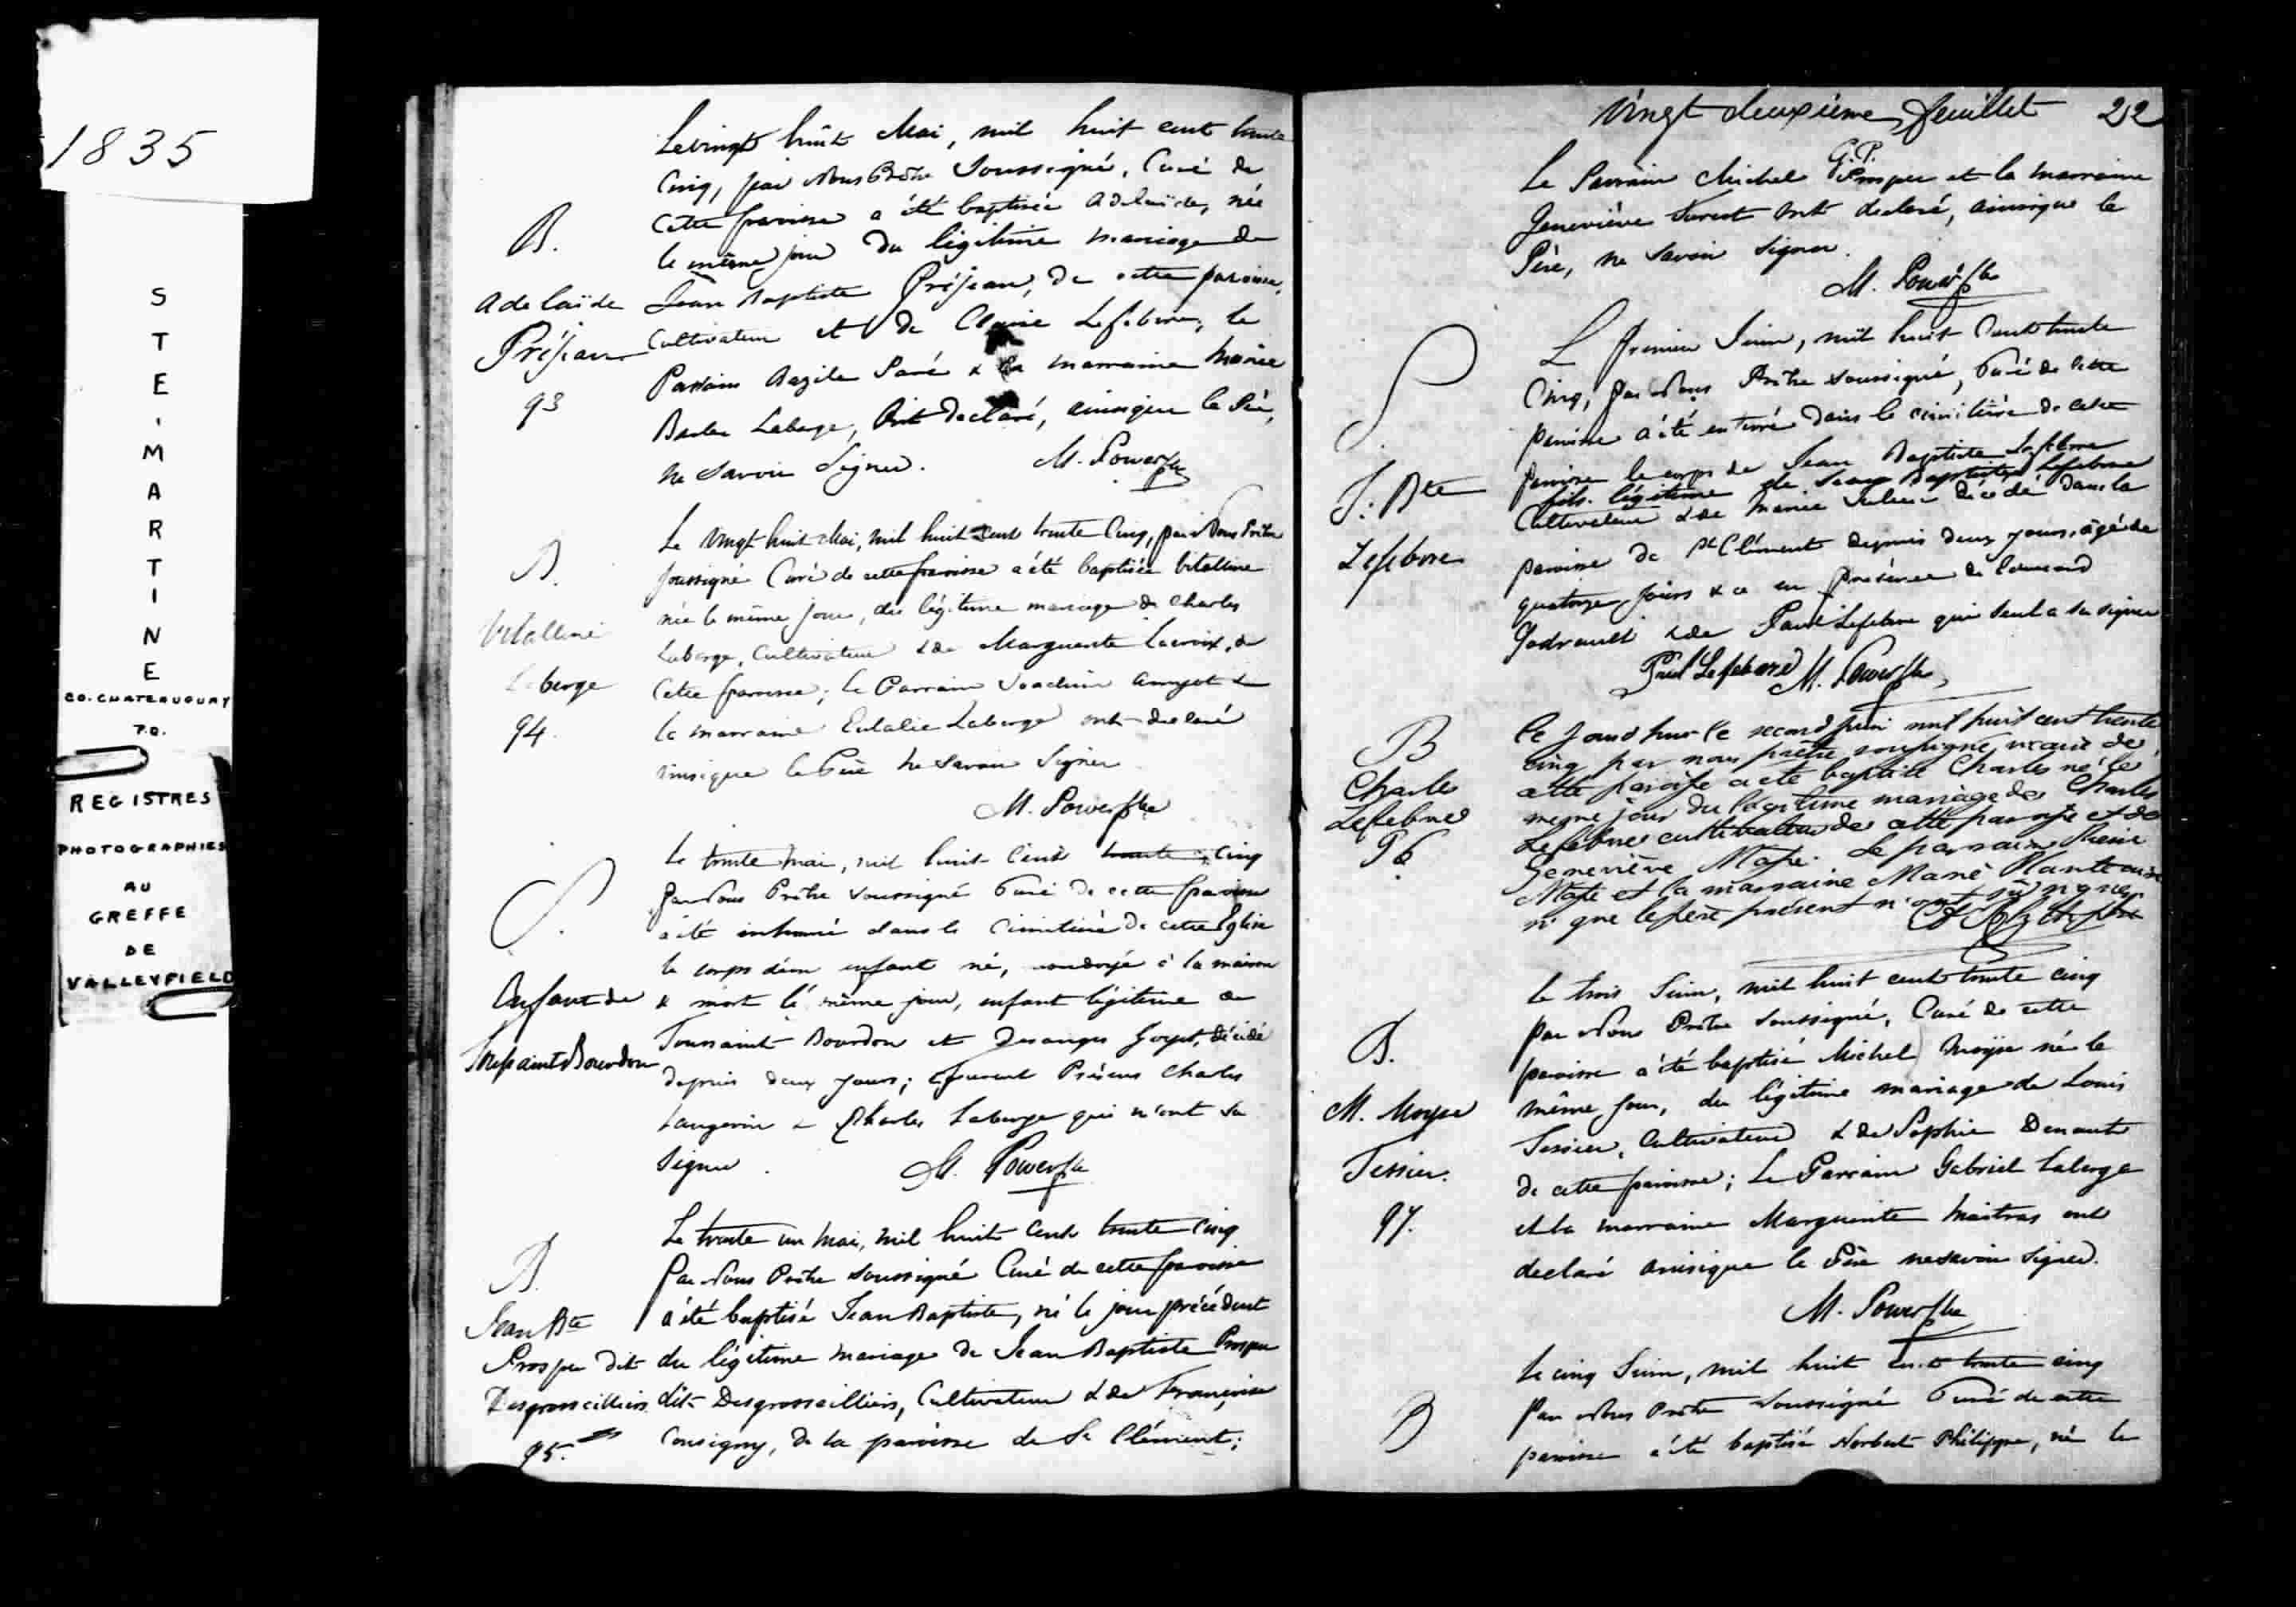 1835
S
T
E
'
M
A
R
T
I
N
E
CO. CHATEAUGUAY
P.Q.
REGISTRES
PHOTOGRAPHIES
AU
GREFFE
DE
VALLEYFIELD
B.
Adelaïde
Préjean
93
Le vingt huit Mai, mil huit cent trente
Cinq, par Nous Prêtre Soussigné, Curé de
cette paroisse a été baptisée Adelaïde, née
le même jour du légitime mariage de
Jean Baptiste Préjean, de cette paroisse,
Cultivateur et de Claire Lefebvre; le
Parrain Bazile Paré & la marraine Marie
Laberge, Ont declaré, ainsique le Père,
ne savoir Signer. M. Power Ptre
B.
Vitalline
Laberge
94
Le Vingt huit Mai, mil huit cent trente Cinq, par Nous Prêtre
soussigné Curé de cette paroisse a été baptisée Vitalline
née le même jour, du légitime mariage de Charles
Laberge, Cultivateur & de Marguerite Lacroix, de
Cette paroisse; le Parrain Joachim Amyot &
la marraine Eulalie Laberge ont declaré
ainsique le Père ne Savoir Signer
M. Power Ptre
S.
Enfant de
Toussaint Bourdon
Le trente Mai, mil huit Cent trente Cinq
par Nous Prêtre Soussigné Curé de cette paroisse
a été inhumé dans le Cimetière de cette Eglise
le corps d'un enfant né, ondoyé à la maison
& mort le même jour, enfant légitime de
Toussaint Bourdon et Desanges Goyet, décédé
depuis deux jours; furent Présens Charles
Langevin & Charles Laberge qui n'ont su
Signer. M. Power Ptre
B.
Jean Bte
Prosper dit
Desgroseilliers
95.
Le trente un Mai, mil huit Cent trente cinq
Par Nous Prêtre Soussigné Curé de cette paroisse
a été baptisé Jean Baptiste, né le jour précédent
du légitime mariage de Jean Baptiste Prosper
dit Desgroseilliers, Cultivateur & de Françoise
Consigny, de la paroisse de St Clément;
Vingt deuxième feuillet 22
G.P.
Le Parrain Michel Prosper et la marraine
Geneviève ont declaré, ainsique le
Père, ne Savoir Signer.
M. Power Ptre
S.
J: Bte
Lefebvre
Le Premier Juin, mil huit Cent trente
Cinq, par Nous Prêtre Soussigné, Curé de cette
paroisse a été enterré dans le cimetière de cette
paroisse le corps de Jean Baptiste Lefebvre
fils légitime de Jean Baptiste Lefebvre
Cultivateur & de Marie décédé dans la
paroisse de St Clément depuis deux jours, âgé de
quatorze jours & ce en présence de
Godrault & de Paul Lefebvre qui seul a su signer
Paul Lefebvre M. Power Ptre
B
Charles
Lefebvre
96
Ce jourd'hui le second juin mil huit cent trente
cinq par nous prêtre soussigné vicaire de
cette paroisse a été baptisé Charles né le
même jour du légitime mariage de Charles
Lefebvre cultivateur de cette paroisse et de
Geneviève Mape. Le parrain
Mape et la marraine Marie Plante ainsi
que le père présent n'ont sû signer
B.
M. Moyse
Tessier.
97.
Le trois Juin, mil huit cent trente cinq
par Nous Prêtre Soussigné, Curé de cette
paroisse a été baptisé Michel Moÿse né le
même jour, du légitime mariage de Louis
Tessier, Cultivateur & de Sophie Denaut
de cette paroisse; Le Parrain Gabriel Laberge
et la marraine Marguerite Maitras ont
declaré ainsique le Père ne savoir Signer.
M. Power Ptre
B
Le cinq Juin, mil huit cent trente cinq
Par Nous Prêtre Soussigné Curé de cette
paroisse a été baptisé Norbert Philippe, né le